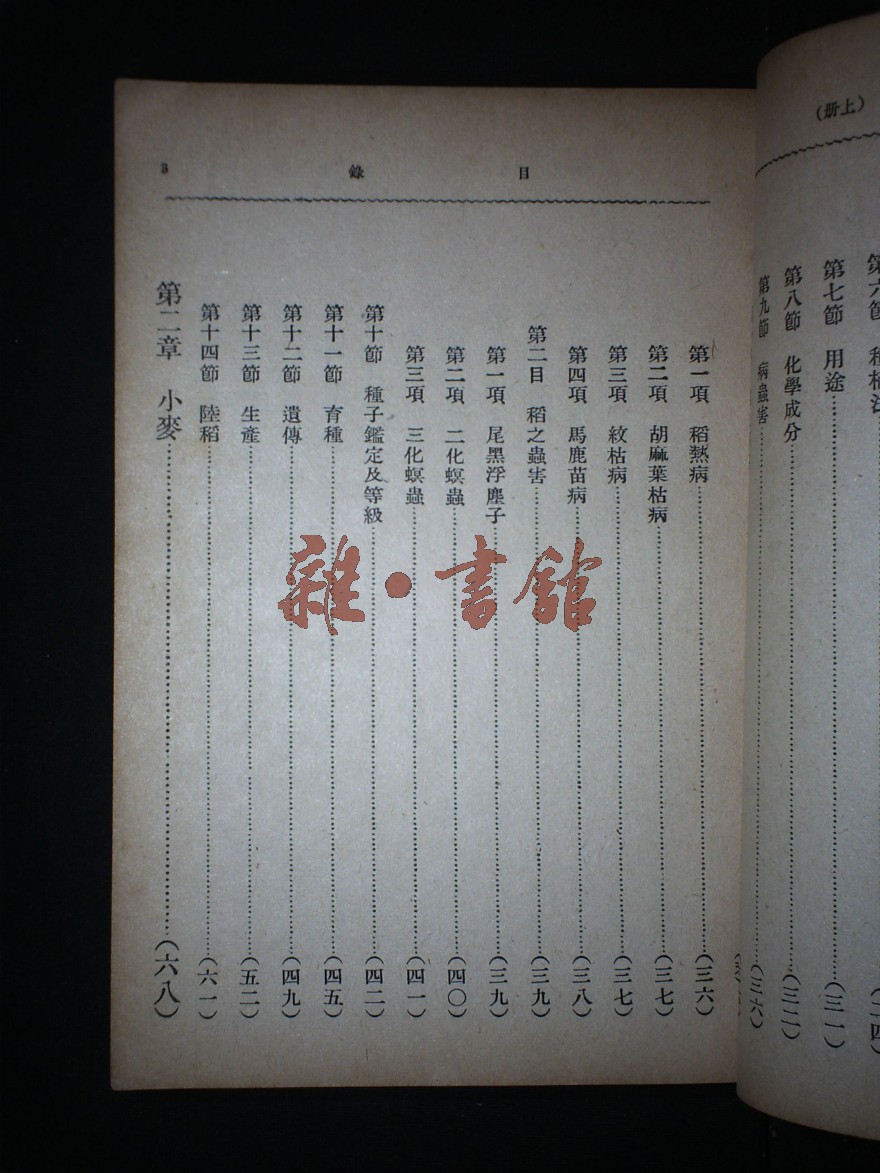 （上册）
第七節　用途……（三一）
第八節　化學成分……（三二）
第九節　病蟲害……（三六）
目　錄　3
第一項　稻熱病……（三六）
第二項　胡麻葉枯病……（三七）
第三項　紋枯病……（三七）
第四項　馬鹿苗病……（三八）
第二目　稻之蟲害……（三九）
第一項　尾黑浮塵子……（三九）
第二項　二化螟蟲……（四〇）
第三項　三化螟蟲……（四一）
第十節　種子鑑定及等級……（四二）
第十一節　育種……（四五）
第十二節　遺傳……（四九）
第十三節　生產……（五二）
第十四節　陸稻……（六一）
第二章　小麥……（六八）
雜·書館